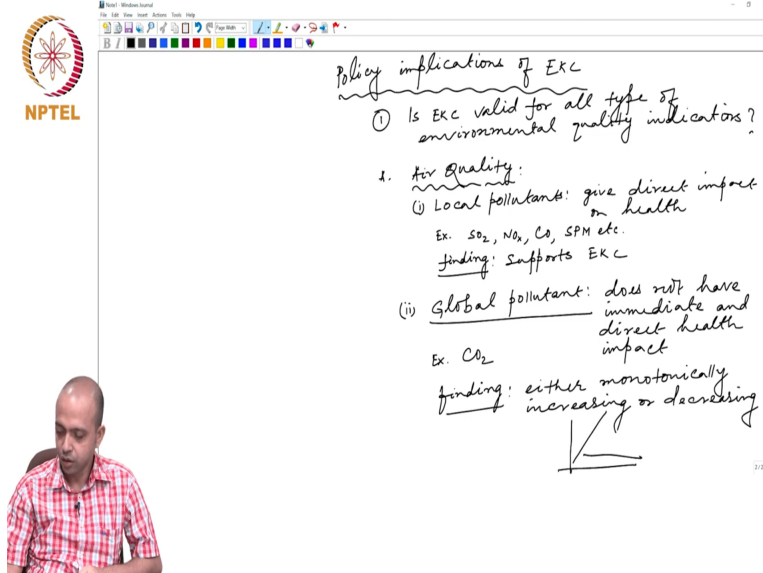 Note1 - Windows Journal
File Edit View Insert Actions Tools Help
Page Width
B I
NPTEL
Policy implications of EKC
① Is EKC valid for all type of
environmental quality indicators?
1. Air Quality:
(i) Local pollutants: give direct impact
on health
Ex. SO2, NOx, CO, SPM etc.
finding: supports EKC
(ii) Global pollutant: does not have
immediate and
direct health
impact
Ex. CO2
finding: either monotonically
increasing or decreasing
2/2